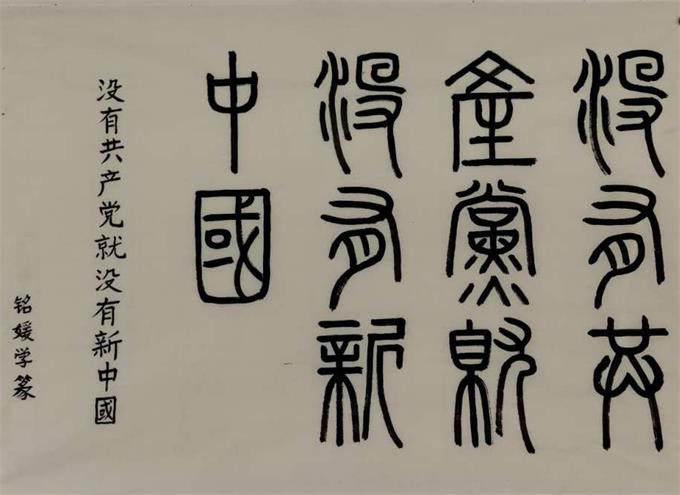 没有共
產黨就
没有新
中國
没有共产党就没有新中國
铭媛学篆